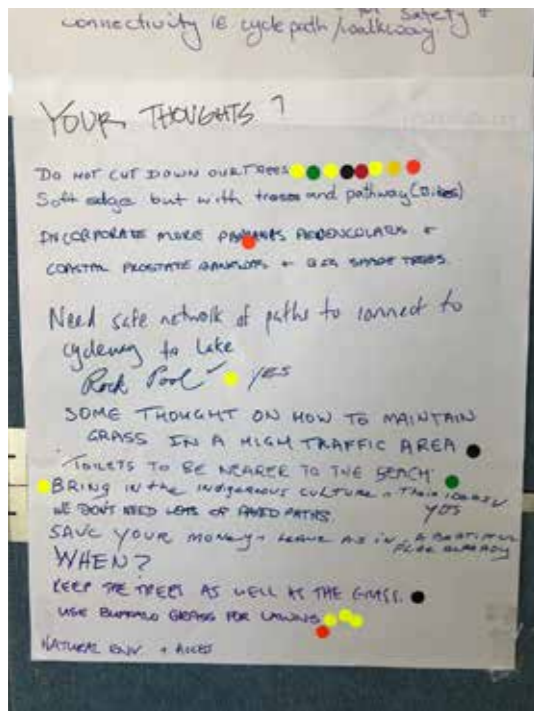 safety +
connectivity IE cycle path / walkway
YOUR THOUGHTS ?
DO NOT CUT DOWN OUR TREES
Soft edge but with trees and pathway (Bikes)
INCORPORATE MORE +
COASTAL PROSTATE BANKSIAS + BIG SHADE TREES.
Need safe network of paths to connect to
cycleway to Lake
Rock Pool YES
SOME THOUGHT ON HOW TO MAINTAIN
GRASS IN A HIGH TRAFFIC AREA
TOILETS TO BE NEARER TO THE BEACH
BRING IN the INDIGENOUS CULTURE + Their IDEAS
WE DON'T NEED LOTS OF PAVED PATHS YES
SAVE YOUR MONEY + LEAVE AS IN A BEAUTIFUL
ALREADY
WHEN?
KEEP THE TREES AS WELL AS THE GRASS.
USE BUFFALO GRASS FOR LAWNS
NATURAL ENV. + ACCESS